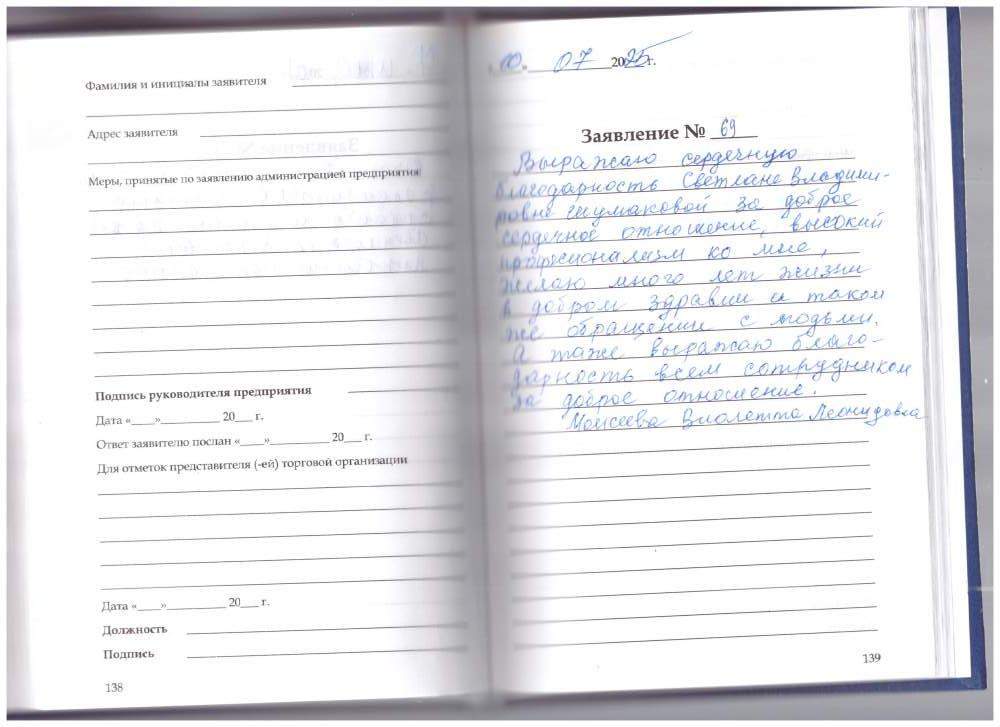 Фамилия и инициалы заявителя
Адрес заявителя
Меры, принятые по заявлению администрацией предприятия
Подпись руководителя предприятия
Дата «____»__________ 20___ г.
Ответ заявителю послан «____»__________ 20___ г.
Для отметок представителя (-ей) торговой организации
Дата «____»__________ 20___ г.
Должность
Подпись
138
10» 07 2025 г.
Заявление № 69
Выражаю сердечную
благодарность Светлане Владими-
ровне Шумаковой за доброе
сердечное отношение, высокий
профисионализм ко мне,
желаю много лет жизни
в добром здравии и таком
же обращении с людьми.
А таже выражаю благо-
дарность всем сотрудником
за доброе отношение.
Моисеева Виолетта Леонидовна
139